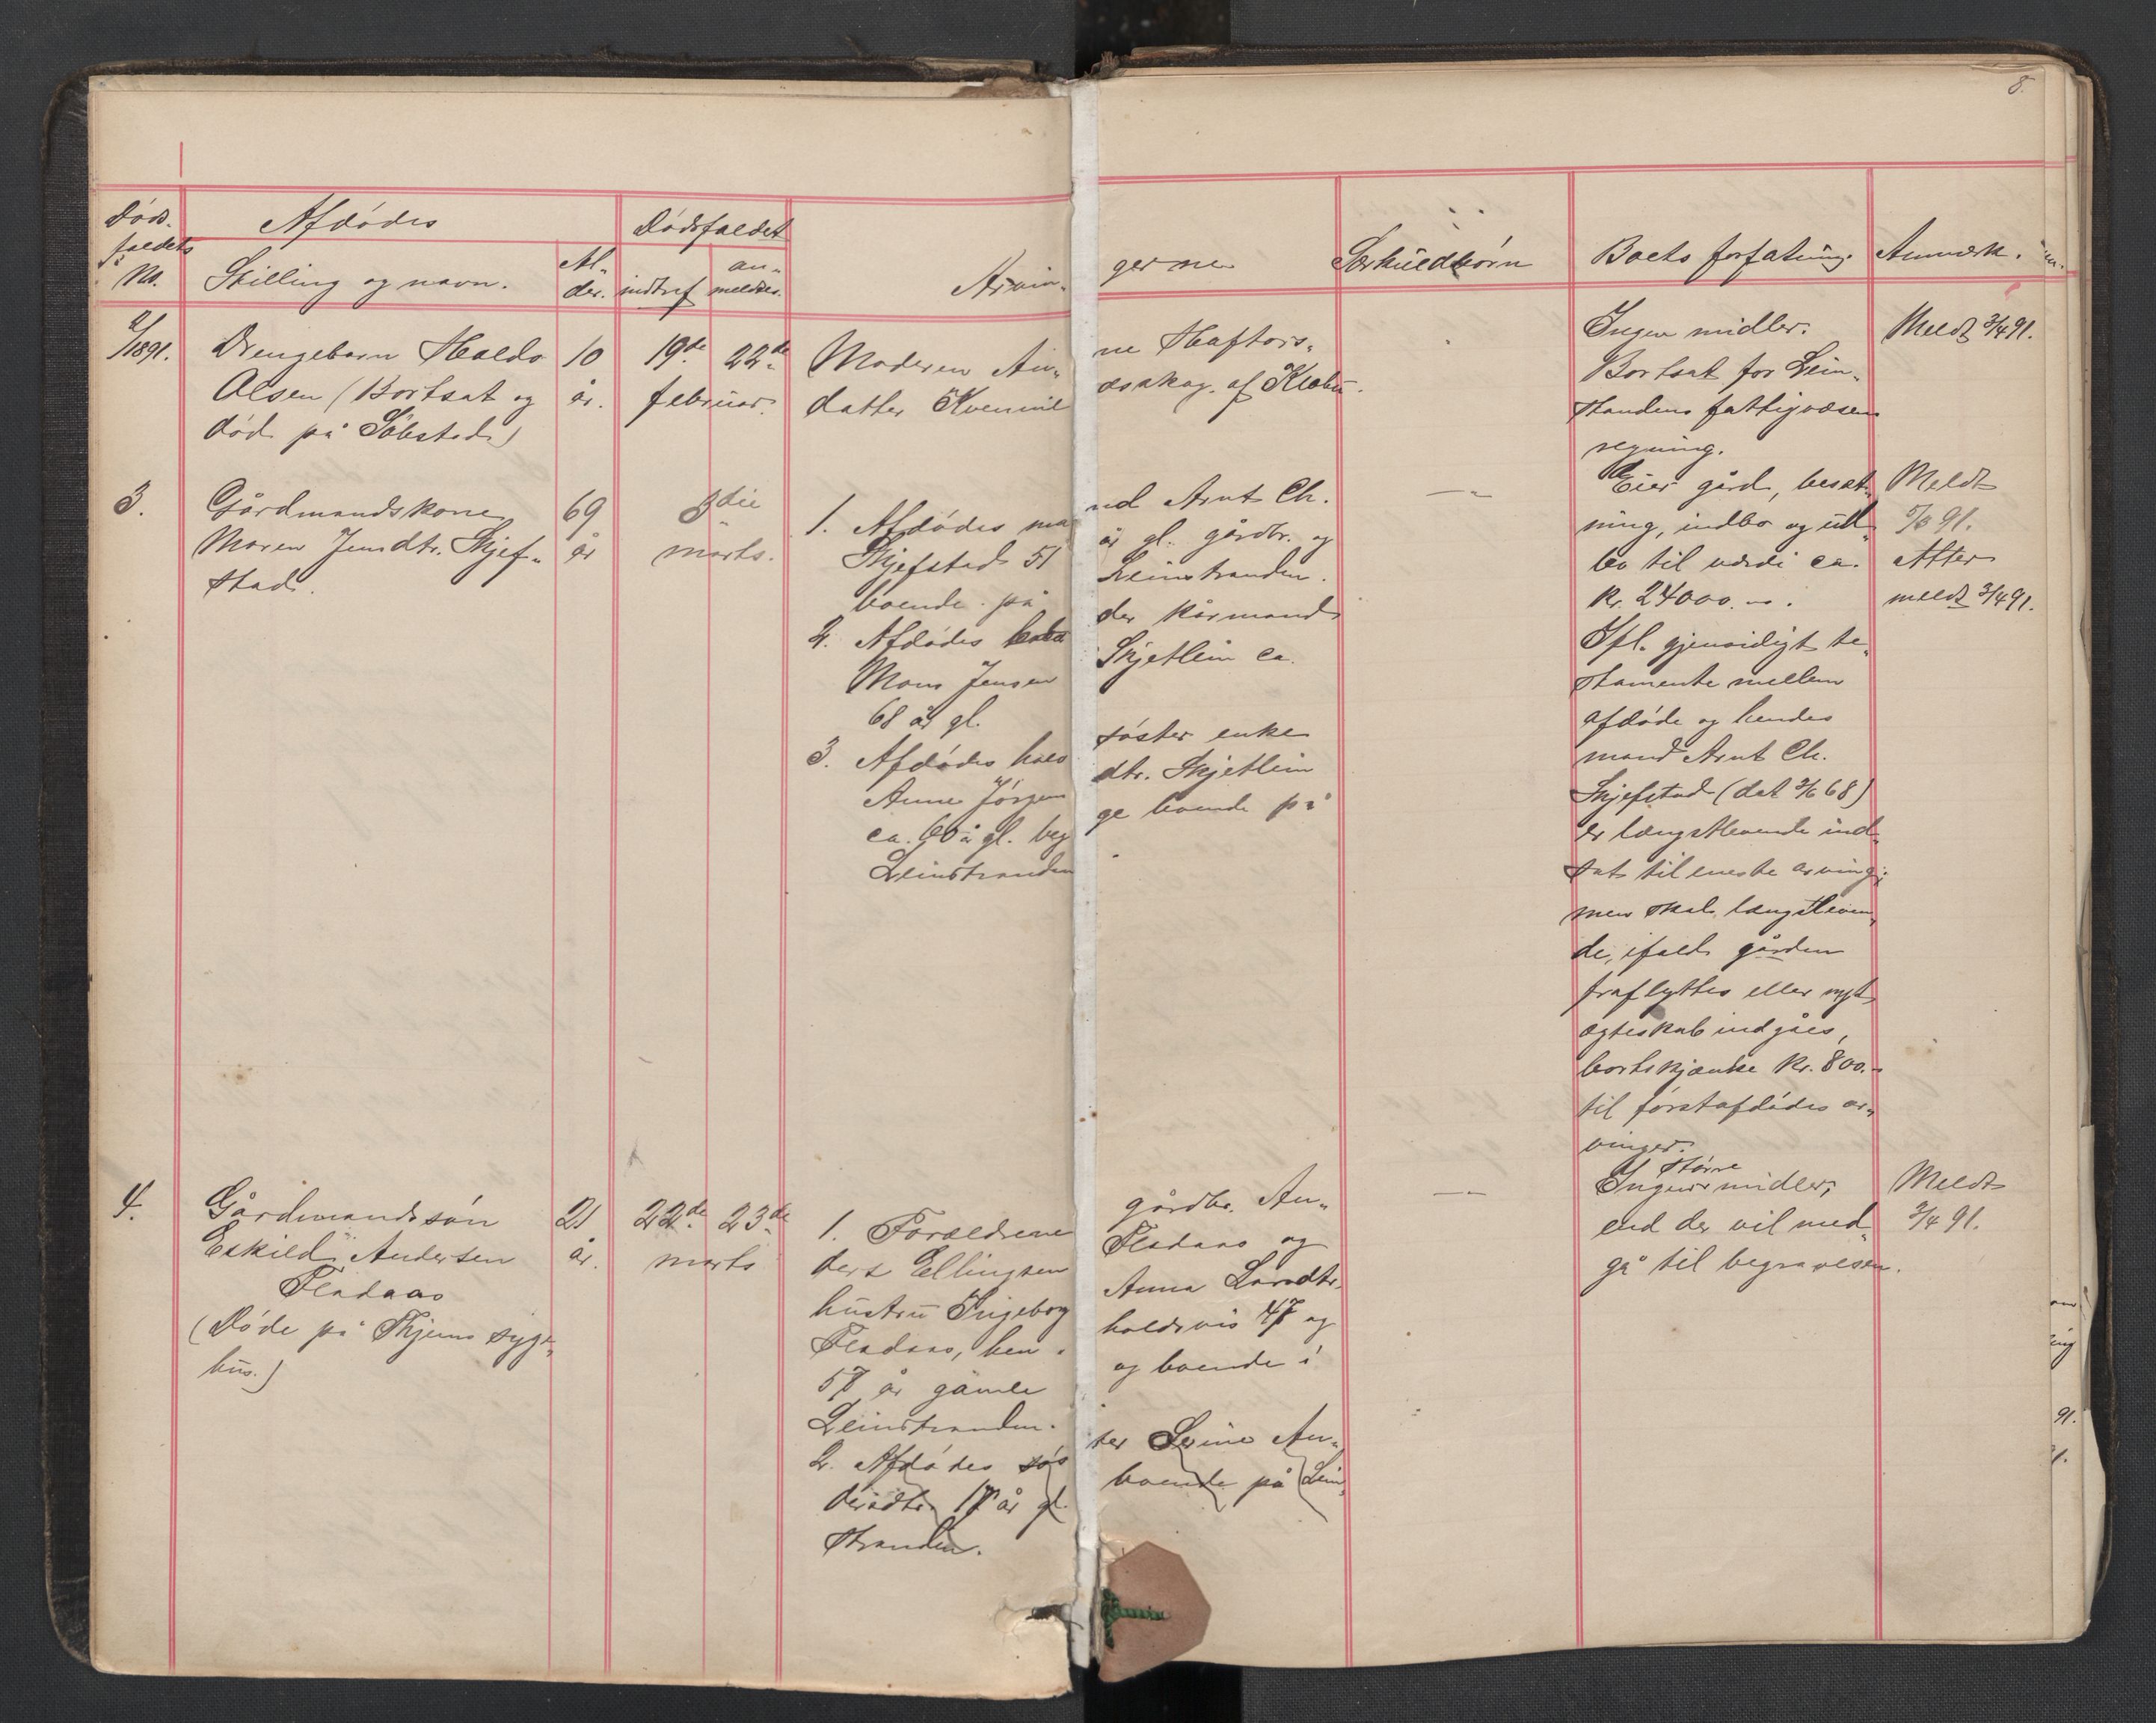 8.
Døds-
faldets
No.
Afdødes
Stilling og navn.
Al-
der.
Dødsfaldet
indtraf
an-
meldtes.
Arvin-
gerne
Særkuldbørn
Boets forfatning.
Anmærk.
2/1891.
Drengebarn Haldo
Olsen (Bortsat og
död på Söbstad)
10
år.
19de
22de
februar.
Moderen An-
ne Haftors-
datter Kvenild
æsskog. af Klæbu.
Ingen midler.
Bortsat for Lein-
strandens fattigvæsens
regning.
Meldt 3/4 91.
3.
Gårdmandskone
Maren Jensdtr. Skjef-
stad.
69
år
3die
marts.
1. Afdödes ma
nd Arnt Ch.
Skjefstad 51
år gl. gårdbr. og
boende på
Leinstranden.
2. Afdödes
der kårmand
Mons Jensen
Skjetlein ca.
68 år gl.
3. Afdödes hals
söster enke
Anne Jörgens
dtr. Skjetlein
ca. 60 år gl. beg
ge boende på
Leinstranden
Eier gård, besæt-
ning, indbo og ud-
bo til værdi ca.
kr. 24000.
Ifl. gjensidigt te-
stamente mellem
afdöde og hendes
mand Arnt Ch.
Skjefstad (dat 68)
er længstlevende ind-
sat til eneste arving;
men skal længstleven-
de, ifald gården
fraflyttes eller nyt
ægteskab indgåes,
bortskjænke kr. 800.-
til förstafdödes ar-
vinger.
Meldt
91.
Atter
meldt 3/4 91.
4.
Gårdmandssön
Eskild Andersen
Fladaas
(Döde på Thjems syge-
hus.)
21
år.
22de
23de
marts
1. Forældrene
gårdbr. An-
ders Ellingsen
Fladaas og
hustru Ingeborg
Anna Larsdtr.
Fladaas, hen-
holdsvis 47 og
57 år gamle
og boende i
Leinstranden.
2. Afdödes sös
ter Serine An-
dersdtr. 17 år gl.
boende på Lein-
stranden.
Ingen större midler,
end der vil med-
gå til begravelsen.
Meldt
3/4 91.